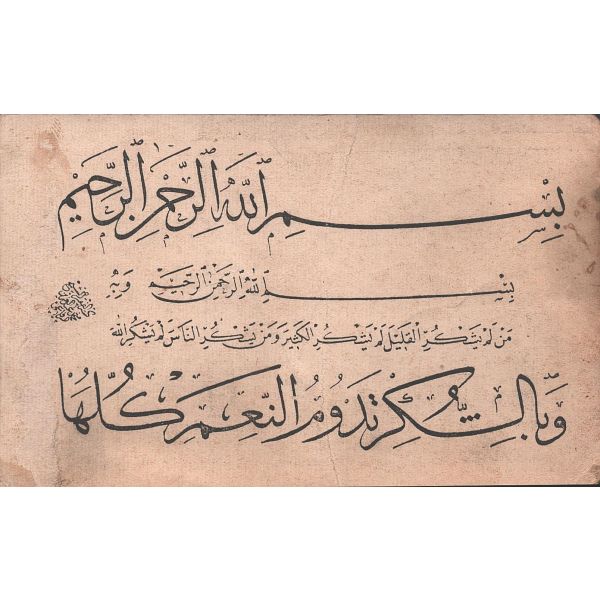 بِسْمِ اللهِ الرَّحْمٰنِ الرَّحِيْمِ
بِسْمِ اللهِ الرَّحْمٰنِ الرَّحِيْمِ وَبِهِ
مَنْ لَمْ يَشْكُرِ الْقَلِيْلَ لَمْ يَشْكُرِ الْكَثِيْرَ وَمَنْ لَمْ يَشْكُرِ النَّاسَ لَمْ يَشْكُرِ اللهَ
وَبِالشُّكْرِ تَدُوْمُ النِّعَمُ كُلُّهَا